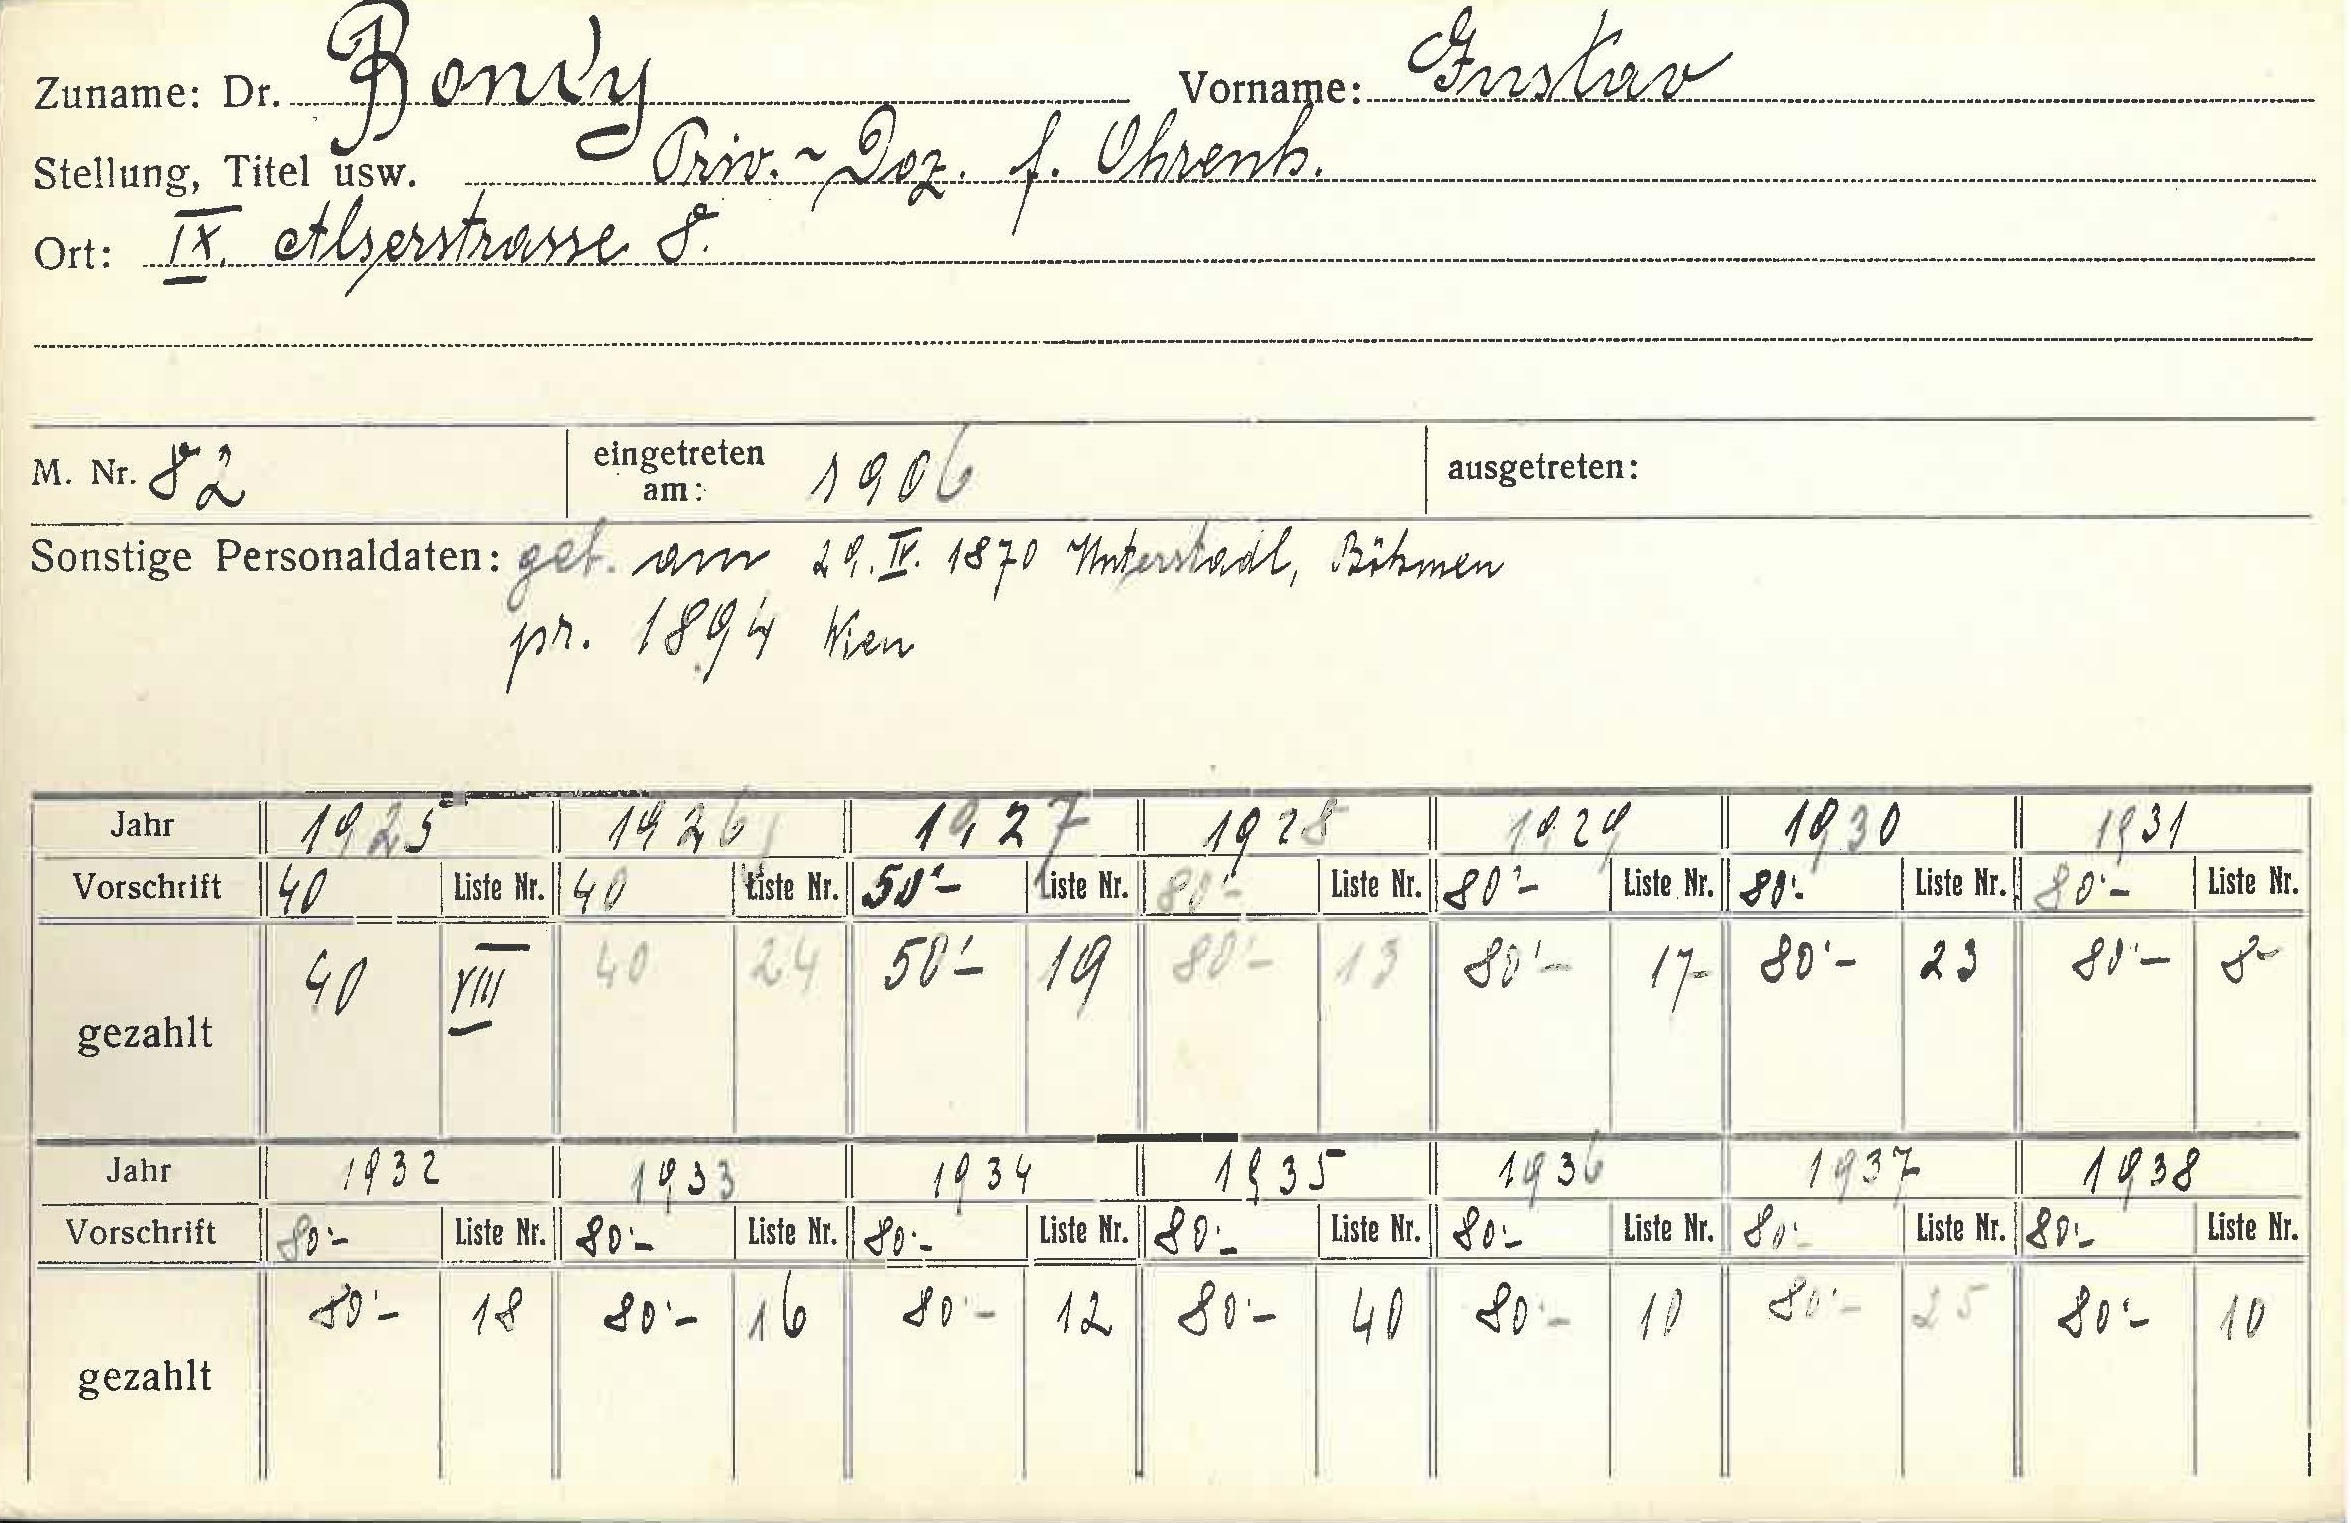 Zuname: Dr. Bondy Vorname: Gustav
Stellung, Titel usw. Priv.-Doz. f. Ohrenh.
Ort: IX. Alserstrasse 8.
M. Nr. 82 eingetreten am: 1906 ausgetreten:
Sonstige Personaldaten: geb. am 29. IV. 1870 Unterstadl, Böhmen
pr. 1894 Wien
Jahr 1925 1926 1927 1928 1929 1930 1931
Vorschrift 40 Liste Nr. 40 Liste Nr. 50'- Liste Nr. 80'- Liste Nr. 80'- Liste Nr. 80'- Liste Nr. 80'- Liste Nr.
gezahlt 40 VIII 40 24 50'- 19 80'- 13 80'- 17 80'- 23 80'- 8
Jahr 1932 1933 1934 1935 1936 1937 1938
Vorschrift 80'- Liste Nr. 80'- Liste Nr. 80'- Liste Nr. 80'- Liste Nr. 80'- Liste Nr. 80'- Liste Nr. 80'- Liste Nr.
gezahlt 80'- 18 80'- 16 80'- 12 80'- 40 80'- 10 80'- 25 80'- 10